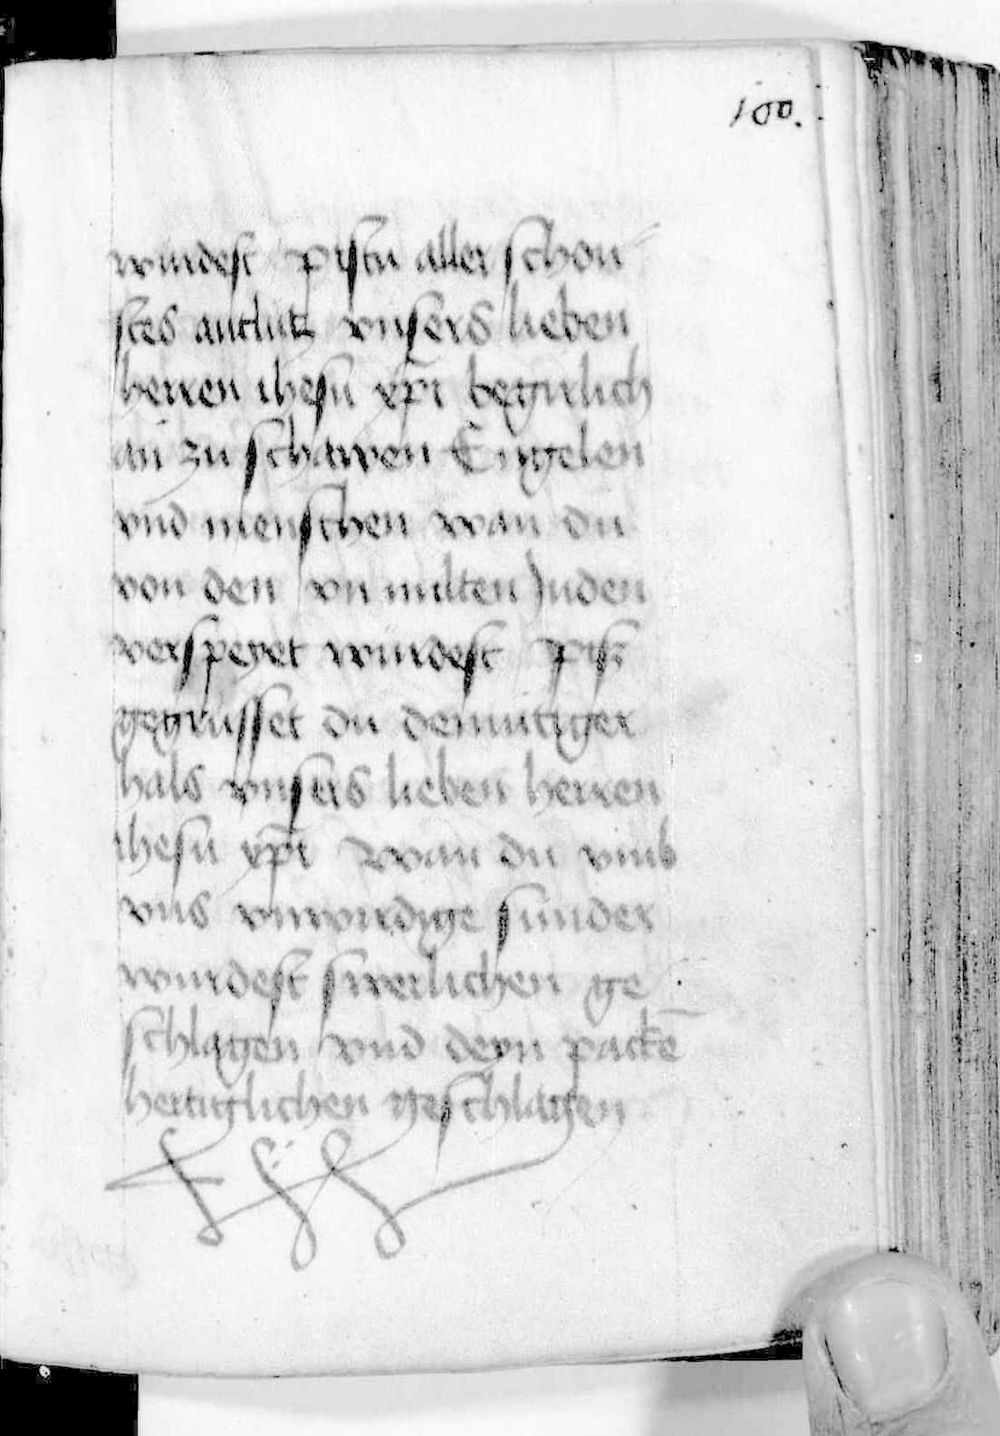 100.
wurdest pistu aller schon
stes antlutz vnsers lieben
herren ihesu xp̄i begirlich
an zu schawen Engelen
vnd menschen wan du
von den vn milten Juden
verspeyet wurdest Pist
gegrusset du demutiger
hals vnsers lieben herren
ihesu xp̄i Wan du vmb
vns vnwirdige sunder
wurdest swerlichen ge
schlagen vnd deyn packē
hertiglichen geschlagen